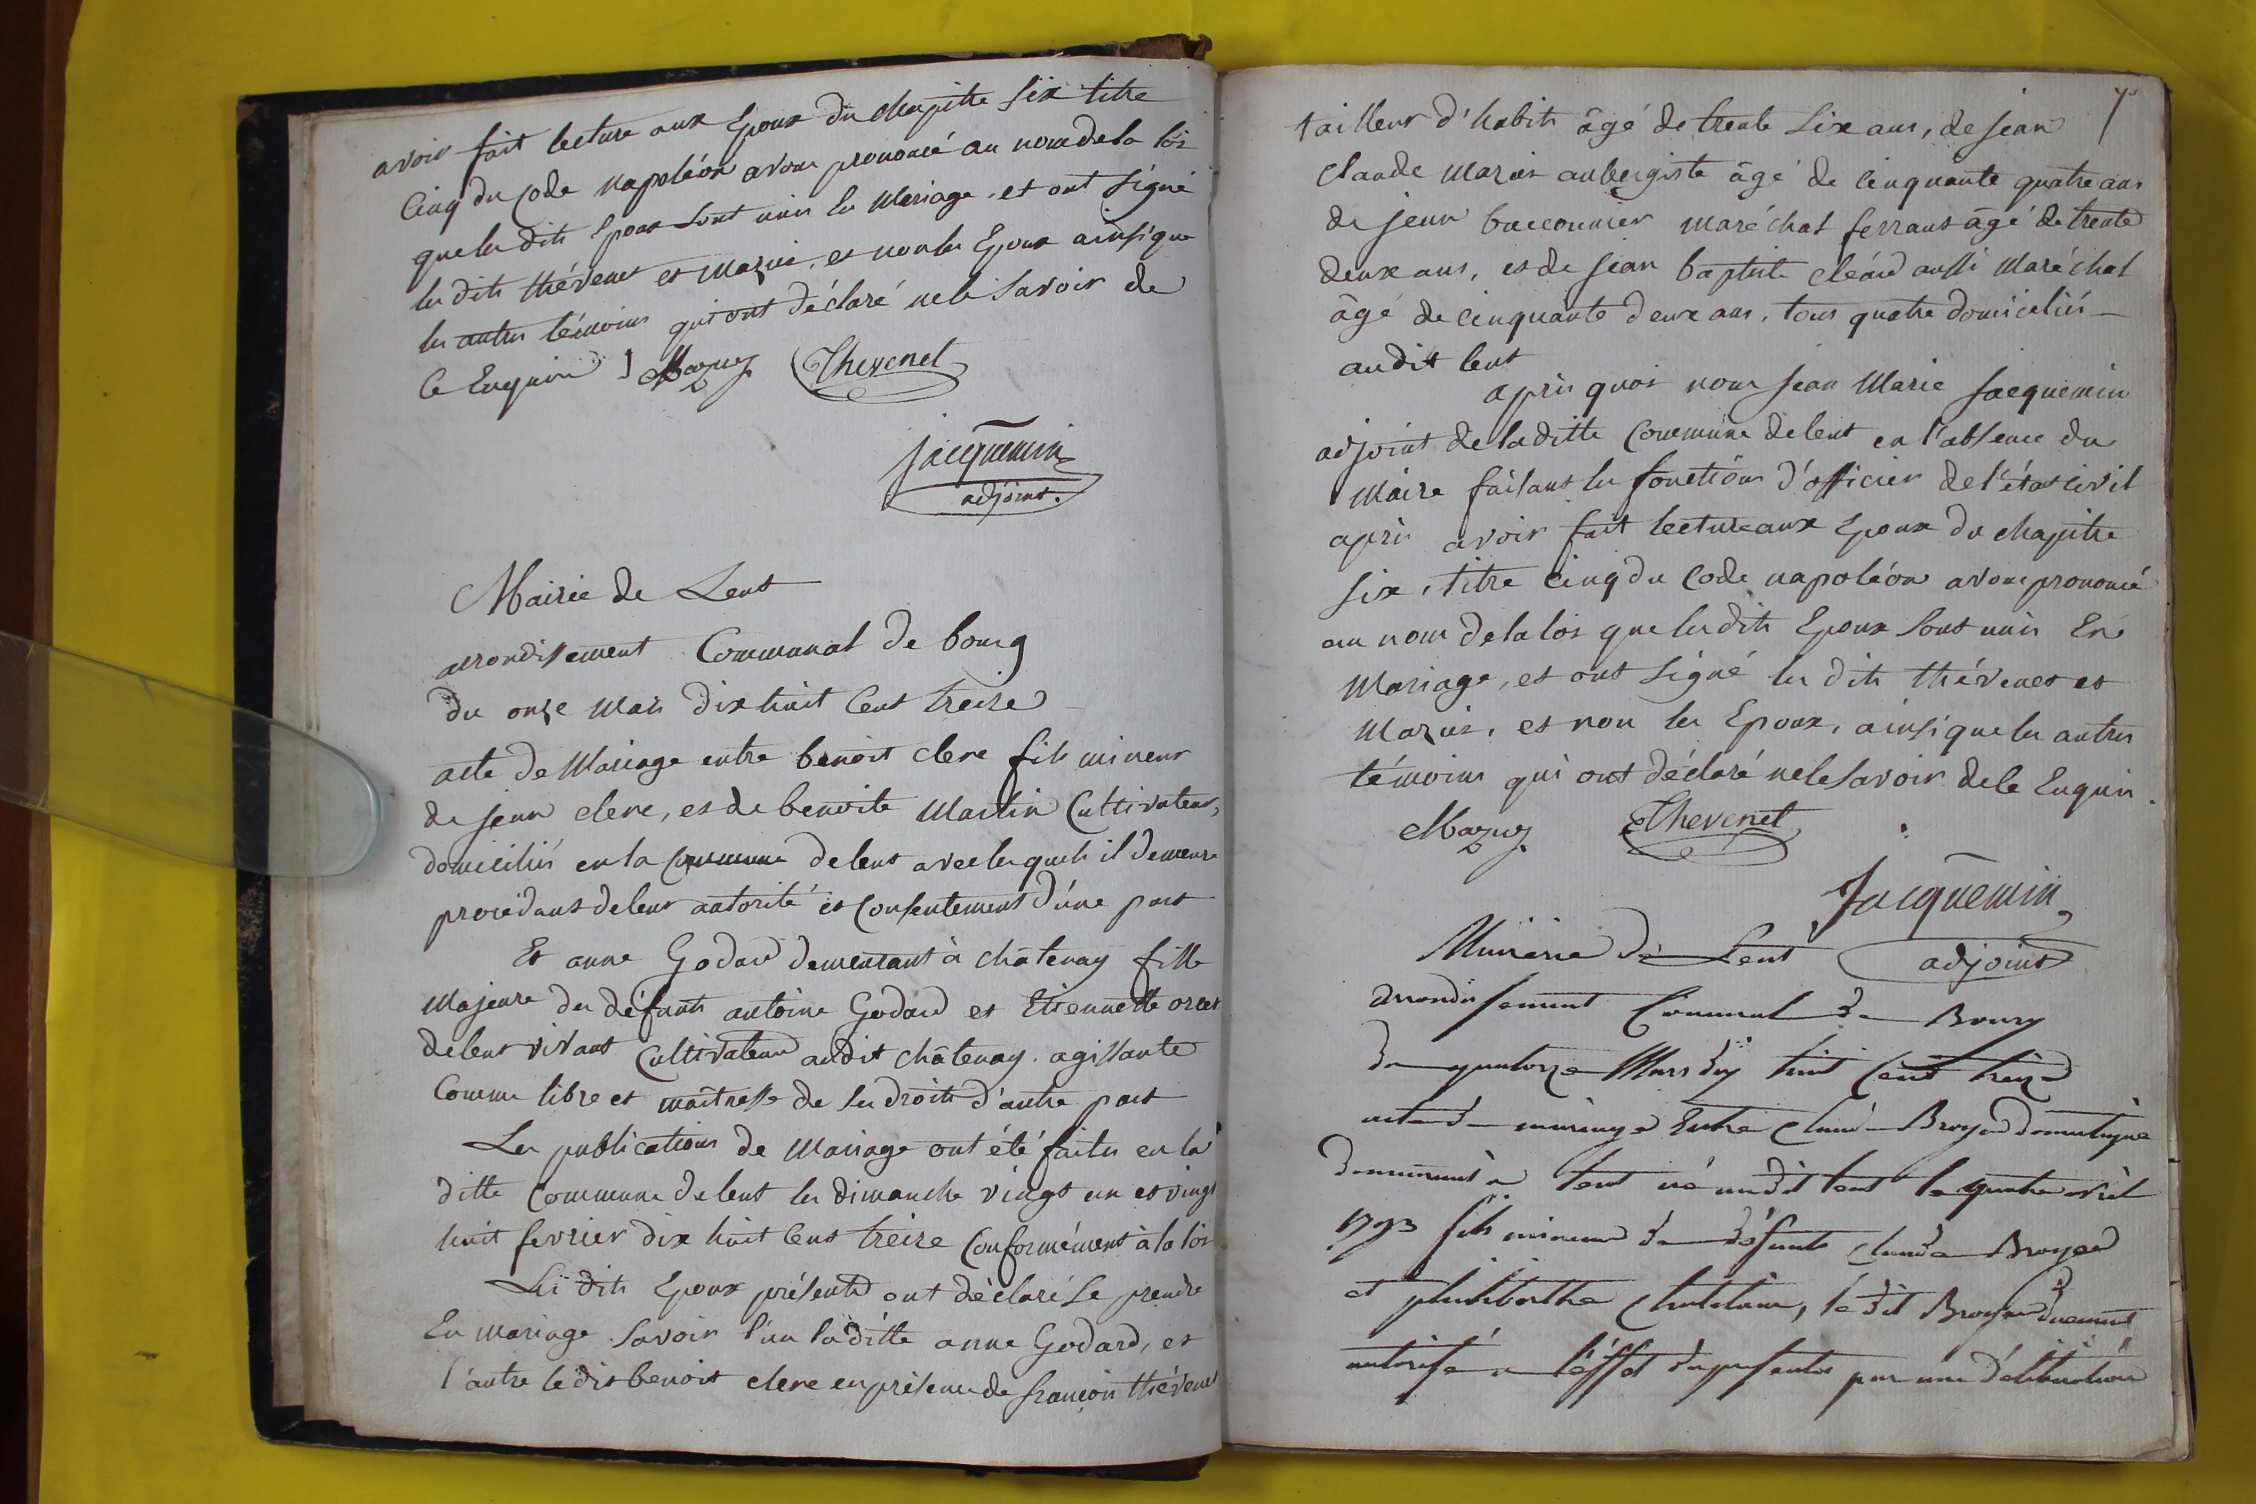 avoir fait lecture aux Epoux du chapitre Six titre
Cinq du Code napoléon avons prononcé au nom de la loi
que les dits Epoux sont unis en Mariage, et ont Signé
les dits thévenet et Mazuir, et non les Epoux ainsi que
les autres témoins qui ont déclaré ne le Savoir de
Ce Enquis Mazuy Thevenet
jacquemin
adjoint.
Mairie de Lent
arrondissement Communal de bourg
du onze Mars dix huit Cent treize
acte de Mariage entre benoit clerc fils mineur
de jean clerc, et de benoite Martin Cultivateurs,
domiciliés en la Commune de lent avec lesquels il demeure
procédant de leur autorité et Consentement d'une part
Et anne Godard demeurant à châtenay fille
Majeure des défunts antoine Godard et Etiennette orcet
de leur vivant Cultivateurs audit châtenay. agissante
Comme libre et maîtresse de ses droits d'autre part
Les publications de Mariage ont été faites en la
ditte Commune de lent les dimanche vingt un et vingt
huit fevrier dix huit Cent treize Conformément à la loi
Les dits Epoux présents ont déclaré Se prendre
En mariage Savoir l'un la ditte anne Godard, et
l'autre le dit benoit clerc en présence de françois thévenet
tailleur d'habits âgé de trente Six ans, de jean
claude Mazuir aubergiste âgé de Cinquante quatre ans
de jean bucconnier maréchal ferrant âgé de trente
deux ans, et de jean baptiste cléard aussi Maréchal
âgé de cinquante deux ans, tous quatre domiciliés
audit lent
après quoi nous jean Marie jacquemin
adjoint de la ditte Commune de lent en l'absence du
Maire faisant les fonctions d'officier de l'état civil
après avoir fait lecture aux Epoux du chapitre
Six, titre Cinq du Code napoléon avons prononcé
au nom de la loi que les dits Epoux Sont unis En
Mariage, et ont Signé les dits thévenet et
Mazuir, et non les Epoux, ainsi que les autres
témoins qui ont déclaré ne le Savoir de le Enquis.
Mazuy Thevenet
Jacquemin
Mairie de Lent adjoint
arrondissement Communal de Bourg
du quatorze Mars dix huit Cent treize
acte de mariage Entre Claude Broyard domestique
demeurant a lent né audit lent le quatre avril
1793 fils mineur de défunts claude Broyard
et philiberthe Chatelain, le dit Broyard duement
autorisé a l'effet des présentes par une délibération